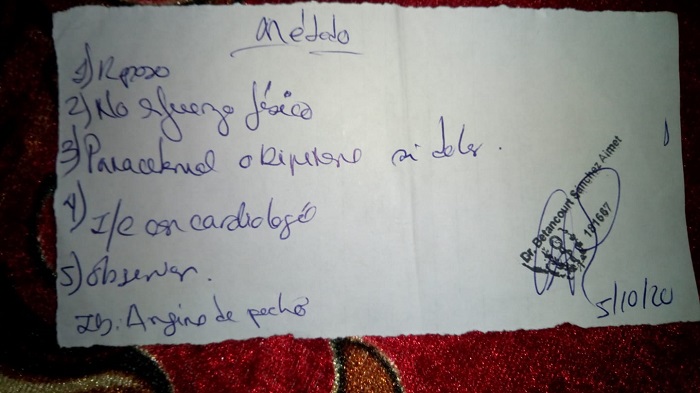 Método
1) Reposo
2) No esfuerzo físico
3) Paracetamol o Dipirona si dolor.
4) I/c con cardiología
5) Observar.
ID. Angina de pecho
Dr. Betancourt Sánchez Aimet
181667
5/10/20